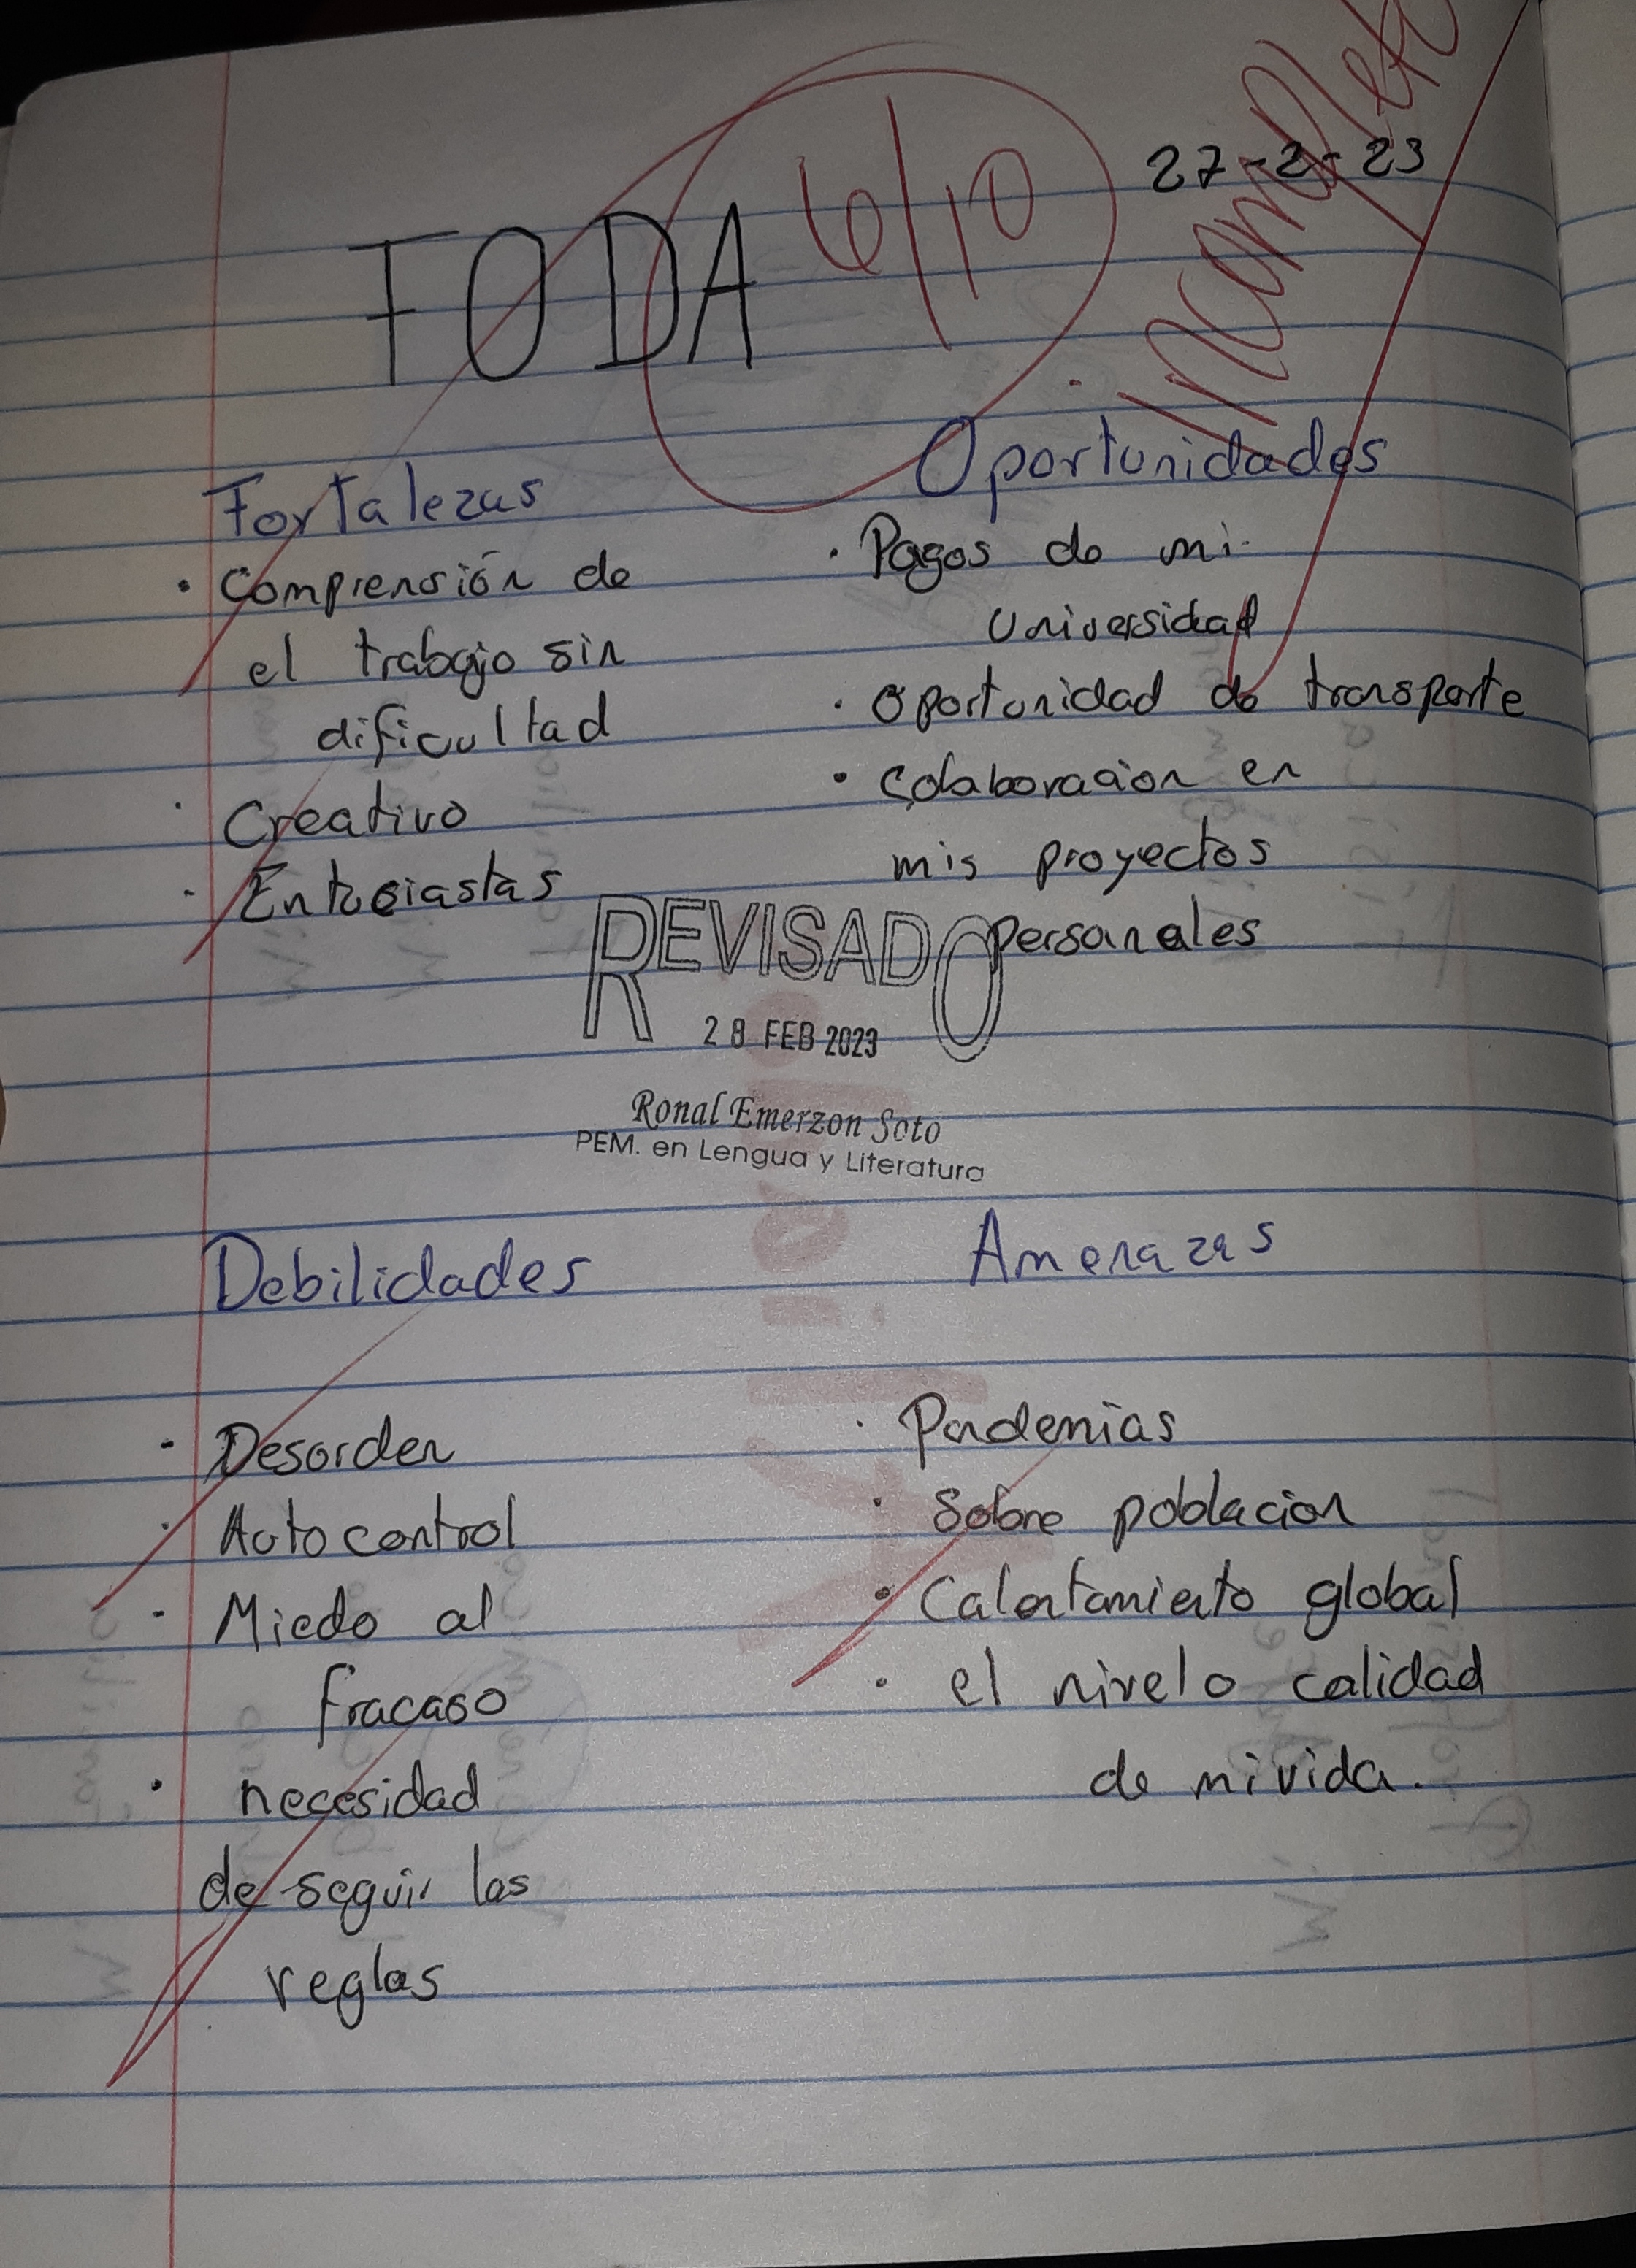 Incompleto
27-2-23
6/10
FODA
Fortalezas
• Comprensión de
el trabajo sin
dificultad
· Creativo
· Entusiastas
Oportunidades
· Pagos de mi
Universidad
· Oportunidad de transporte
• Colaboracion en
mis proyectos
personales
REVISADO
28 FEB 2023
Ronal Emerzon Soto
PEM. en Lengua y Literatura
Debilidades
· Desorden
· Autocontrol
· Miedo al
fracaso
· necesidad
de seguir las
reglas
Amenazas
· Pandemias
· Sobre poblacion
· Calentamiento global
· el nivel o calidad
de mi vida.